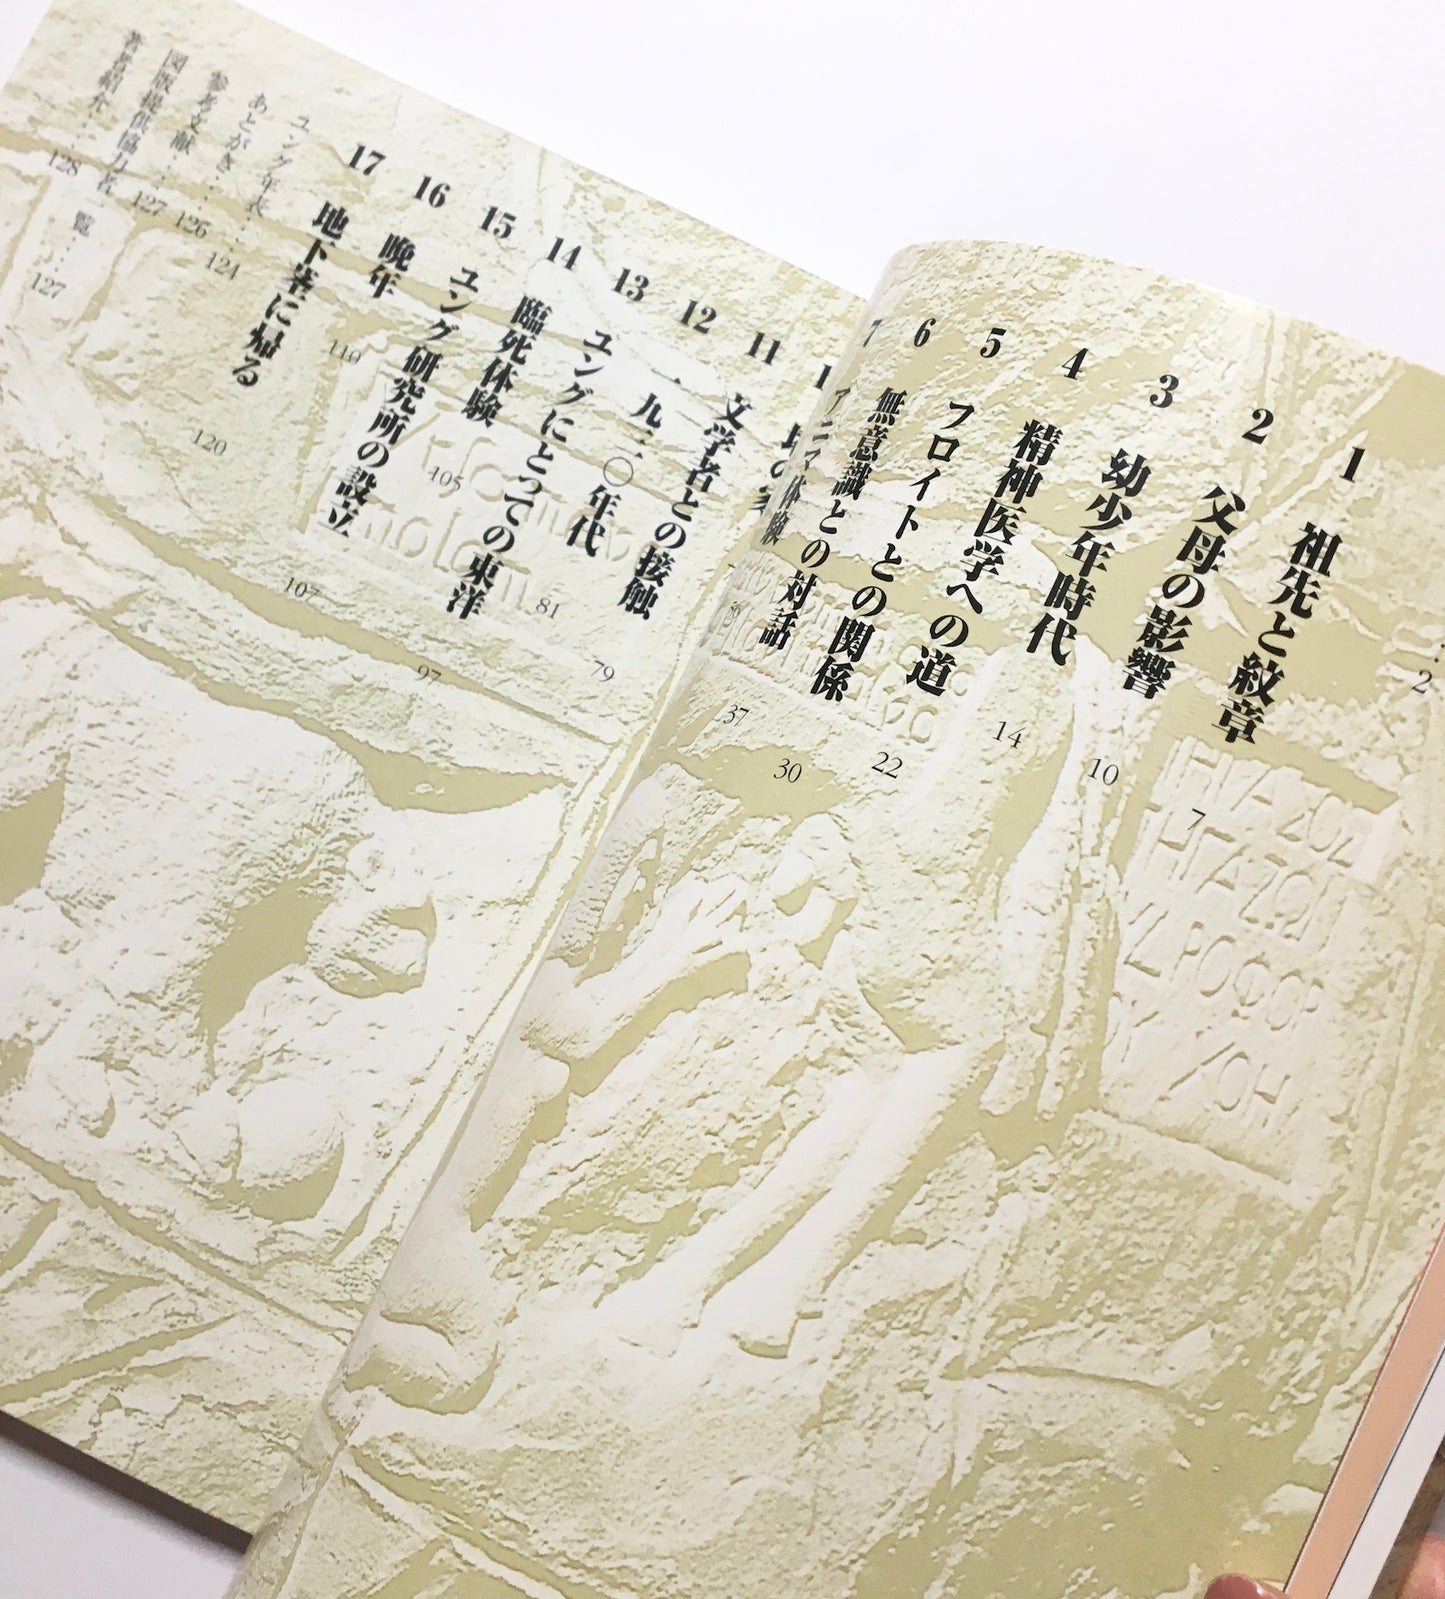 …2
1 祖先と紋章 7
2 父母の影響 10
3 幼少年時代 14
4 精神医学への道 22
5 フロイトとの関係 30
6 無意識との対話 37
7 アニマ体験
11
12 文学者との接触 79
13 一九二〇年代 81
14 ユングにとっての東洋 97
15 臨死体験 105
16 ユング研究所の設立 107
17 晩年 110
地下室に帰る 120
ユング年表……
あとがき…… 124
参考文献…… 126
図版提供協力者一覧…… 127
著者紹介…… 128